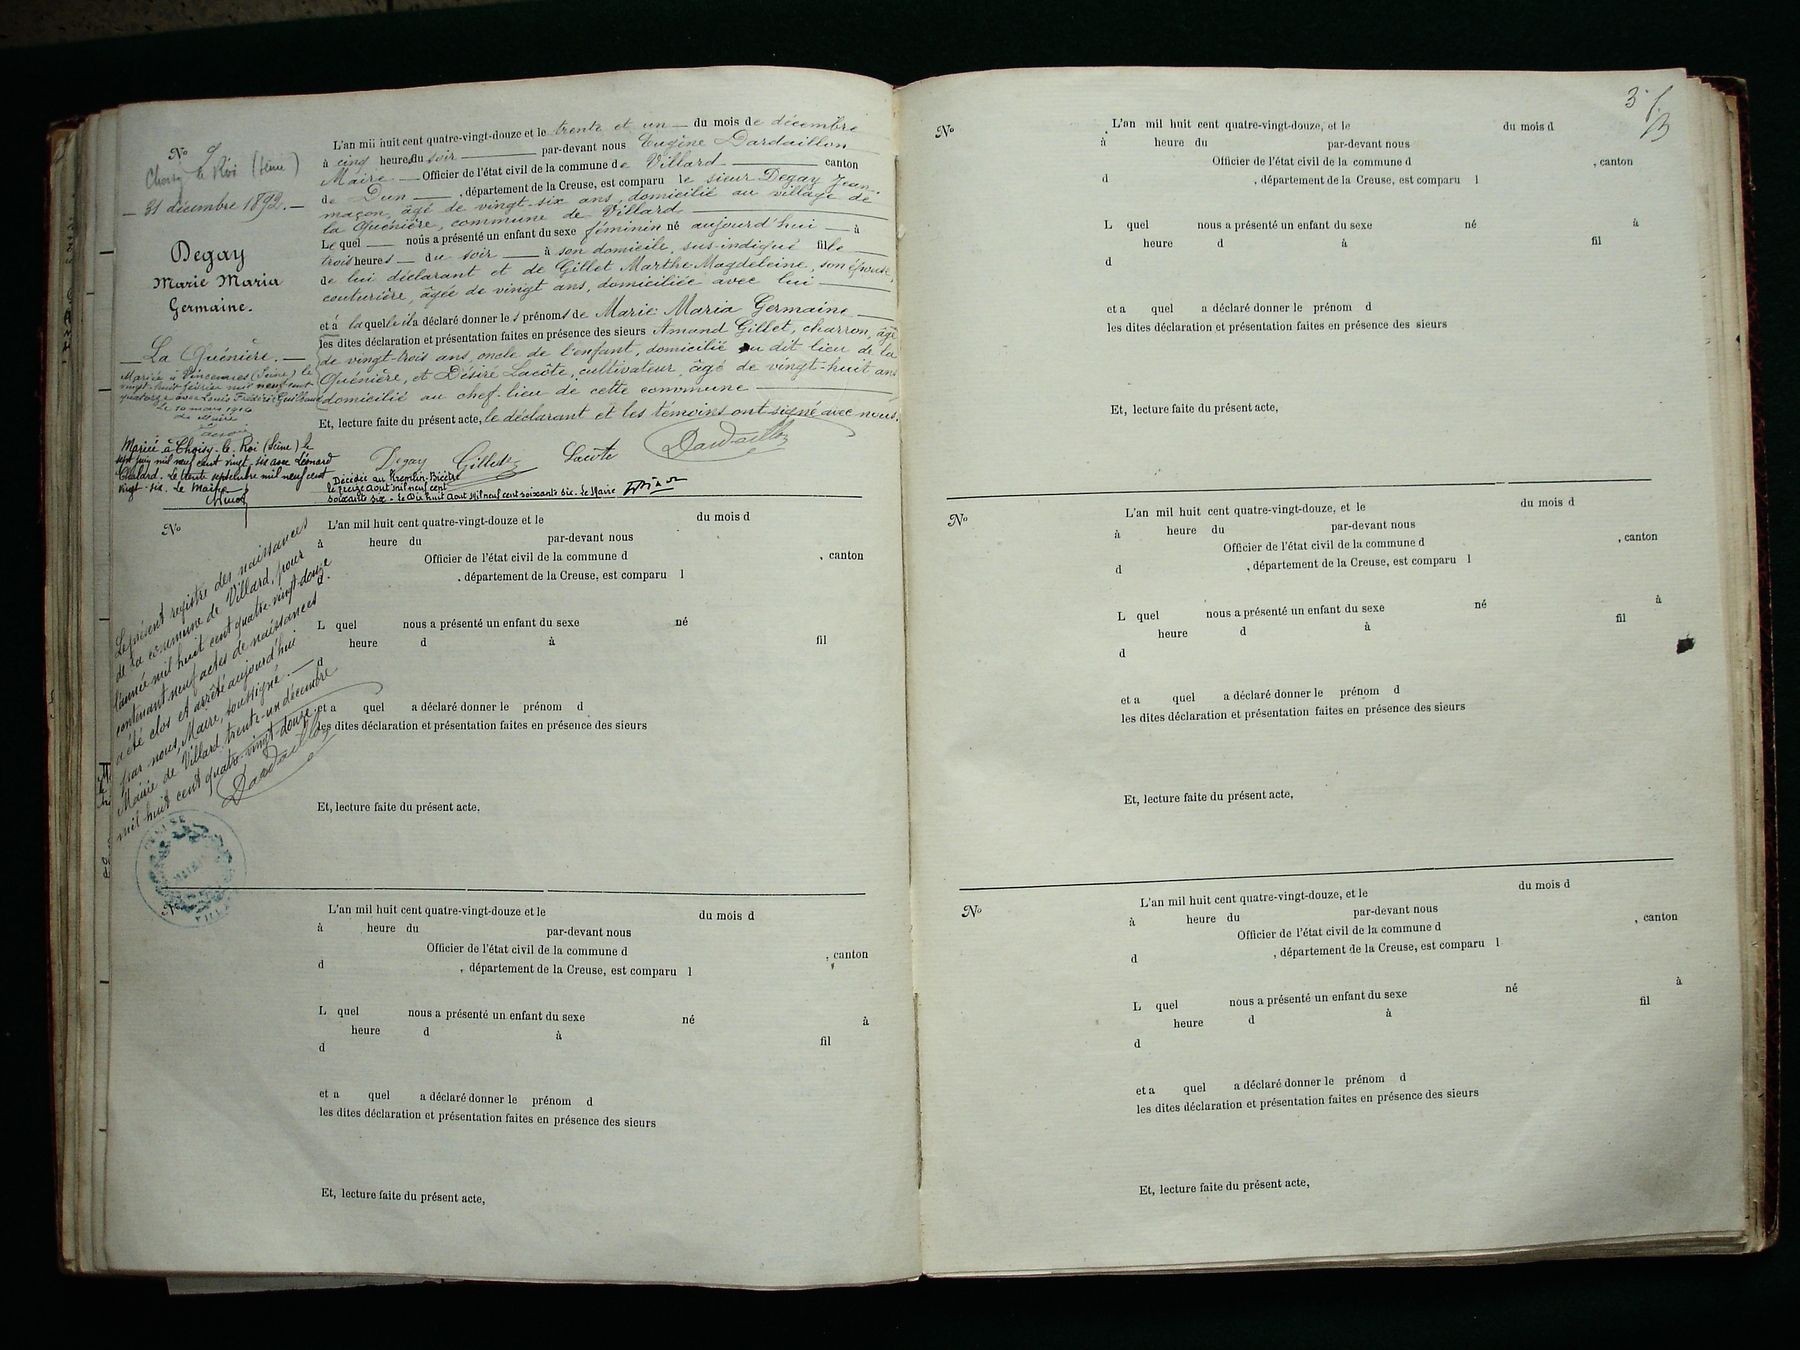 No 9
Choisy le Roi (Seine)
— 31 décembre 1892. —
Degay
Marie Maria
Germaine.
— La Quénière. —
Mariée à Vincennes (Seine) le
vingt-huit février mil neuf cent
quatorze avec Louis Frédéric
Le 10 mars 1914
Le Maire
Marié à Choisy-le-Roi (Seine) le
sept juin mil neuf cent vingt-six avec Léonard
Chalard. Le trente septembre mil neuf cent
vingt-six. Le Maire
L'an mil huit cent quatre-vingt-douze et le trente et un — du mois de décembre
à cinq heures du soir — par-devant nous Eugène Dardaillon
Maire — Officier de l'état civil de la commune de Villard — canton
de Dun — , département de la Creuse, est comparu le sieur Degay Jean,
maçon, âgé de vingt-six ans, domicilié au village de
la Quénière, commune de Villard —
Le quel — nous a présenté un enfant du sexe féminin né aujourd'hui — à
trois heures — du soir — à son domicile, sus-indiqué fille —
de lui déclarant et de Gillet Marthe Magdeleine, son épouse,
couturière, âgée de vingt ans, domiciliée avec lui —
et à laquelle il a déclaré donner les prénoms de Marie Maria Germaine —
les dites déclaration et présentation faites en présence des sieurs Amand Gillet, charron, âgé
de vingt-trois ans, oncle de l'enfant, domicilié au dit lieu de la
Quénière, et Désiré Lacôte, cultivateur, âgé de vingt-huit ans
domicilié au chef-lieu de cette commune —
Et, lecture faite du présent acte, le déclarant et les témoins ont signé avec nous.
Degay Gillet Lacôte Dardaillon
Décédée au Kremlin-Bicêtre
le treize Aout mil neuf cent
soixante six - Le Dix huit Aout Mil neuf cent soixante six. Le Maire
No
L'an mil huit cent quatre-vingt-douze et le du mois d
à heure du par-devant nous
Officier de l'état civil de la commune d , canton
d , département de la Creuse, est comparu l
L quel nous a présenté un enfant du sexe né
heure d à fil
d
et a quel a déclaré donner le prénom d
les dites déclaration et présentation faites en présence des sieurs
Et, lecture faite du présent acte,
Le présent registre des naissances
de la commune de Villard, pour
l'année mil huit cent quatre-vingt-douze
contenant neuf actes de naissances
a été clos et arrêté aujourd'hui
par nous, Maire, soussigné. —
Mairie de Villard, trente-un décembre
mil huit cent quatre-vingt-douze.
Dardaillon
No
L'an mil huit cent quatre-vingt-douze et le du mois d
à heure du par-devant nous
Officier de l'état civil de la commune d , canton
d , département de la Creuse, est comparu l
L quel nous a présenté un enfant du sexe né à
heure d à fil
d
et a quel a déclaré donner le prénom d
les dites déclaration et présentation faites en présence des sieurs
Et, lecture faite du présent acte,
No
L'an mil huit cent quatre-vingt-douze, et le du mois d
à heure du par-devant nous
Officier de l'état civil de la commune d , canton
d , département de la Creuse, est comparu l
L quel nous a présenté un enfant du sexe né à
heure d à fil
d
et a quel a déclaré donner le prénom d
les dites déclaration et présentation faites en présence des sieurs
Et, lecture faite du présent acte,
No
L'an mil huit cent quatre-vingt-douze, et le du mois d
à heure du par-devant nous
Officier de l'état civil de la commune d , canton
d , département de la Creuse, est comparu l
L quel nous a présenté un enfant du sexe né à
heure d à fil
d
et a quel a déclaré donner le prénom d
les dites déclaration et présentation faites en présence des sieurs
Et, lecture faite du présent acte,
No
L'an mil huit cent quatre-vingt-douze, et le du mois d
à heure du par-devant nous
Officier de l'état civil de la commune d , canton
d , département de la Creuse, est comparu l
L quel nous a présenté un enfant du sexe né à
heure d à fil
d
et a quel a déclaré donner le prénom d
les dites déclaration et présentation faites en présence des sieurs
Et, lecture faite du présent acte,